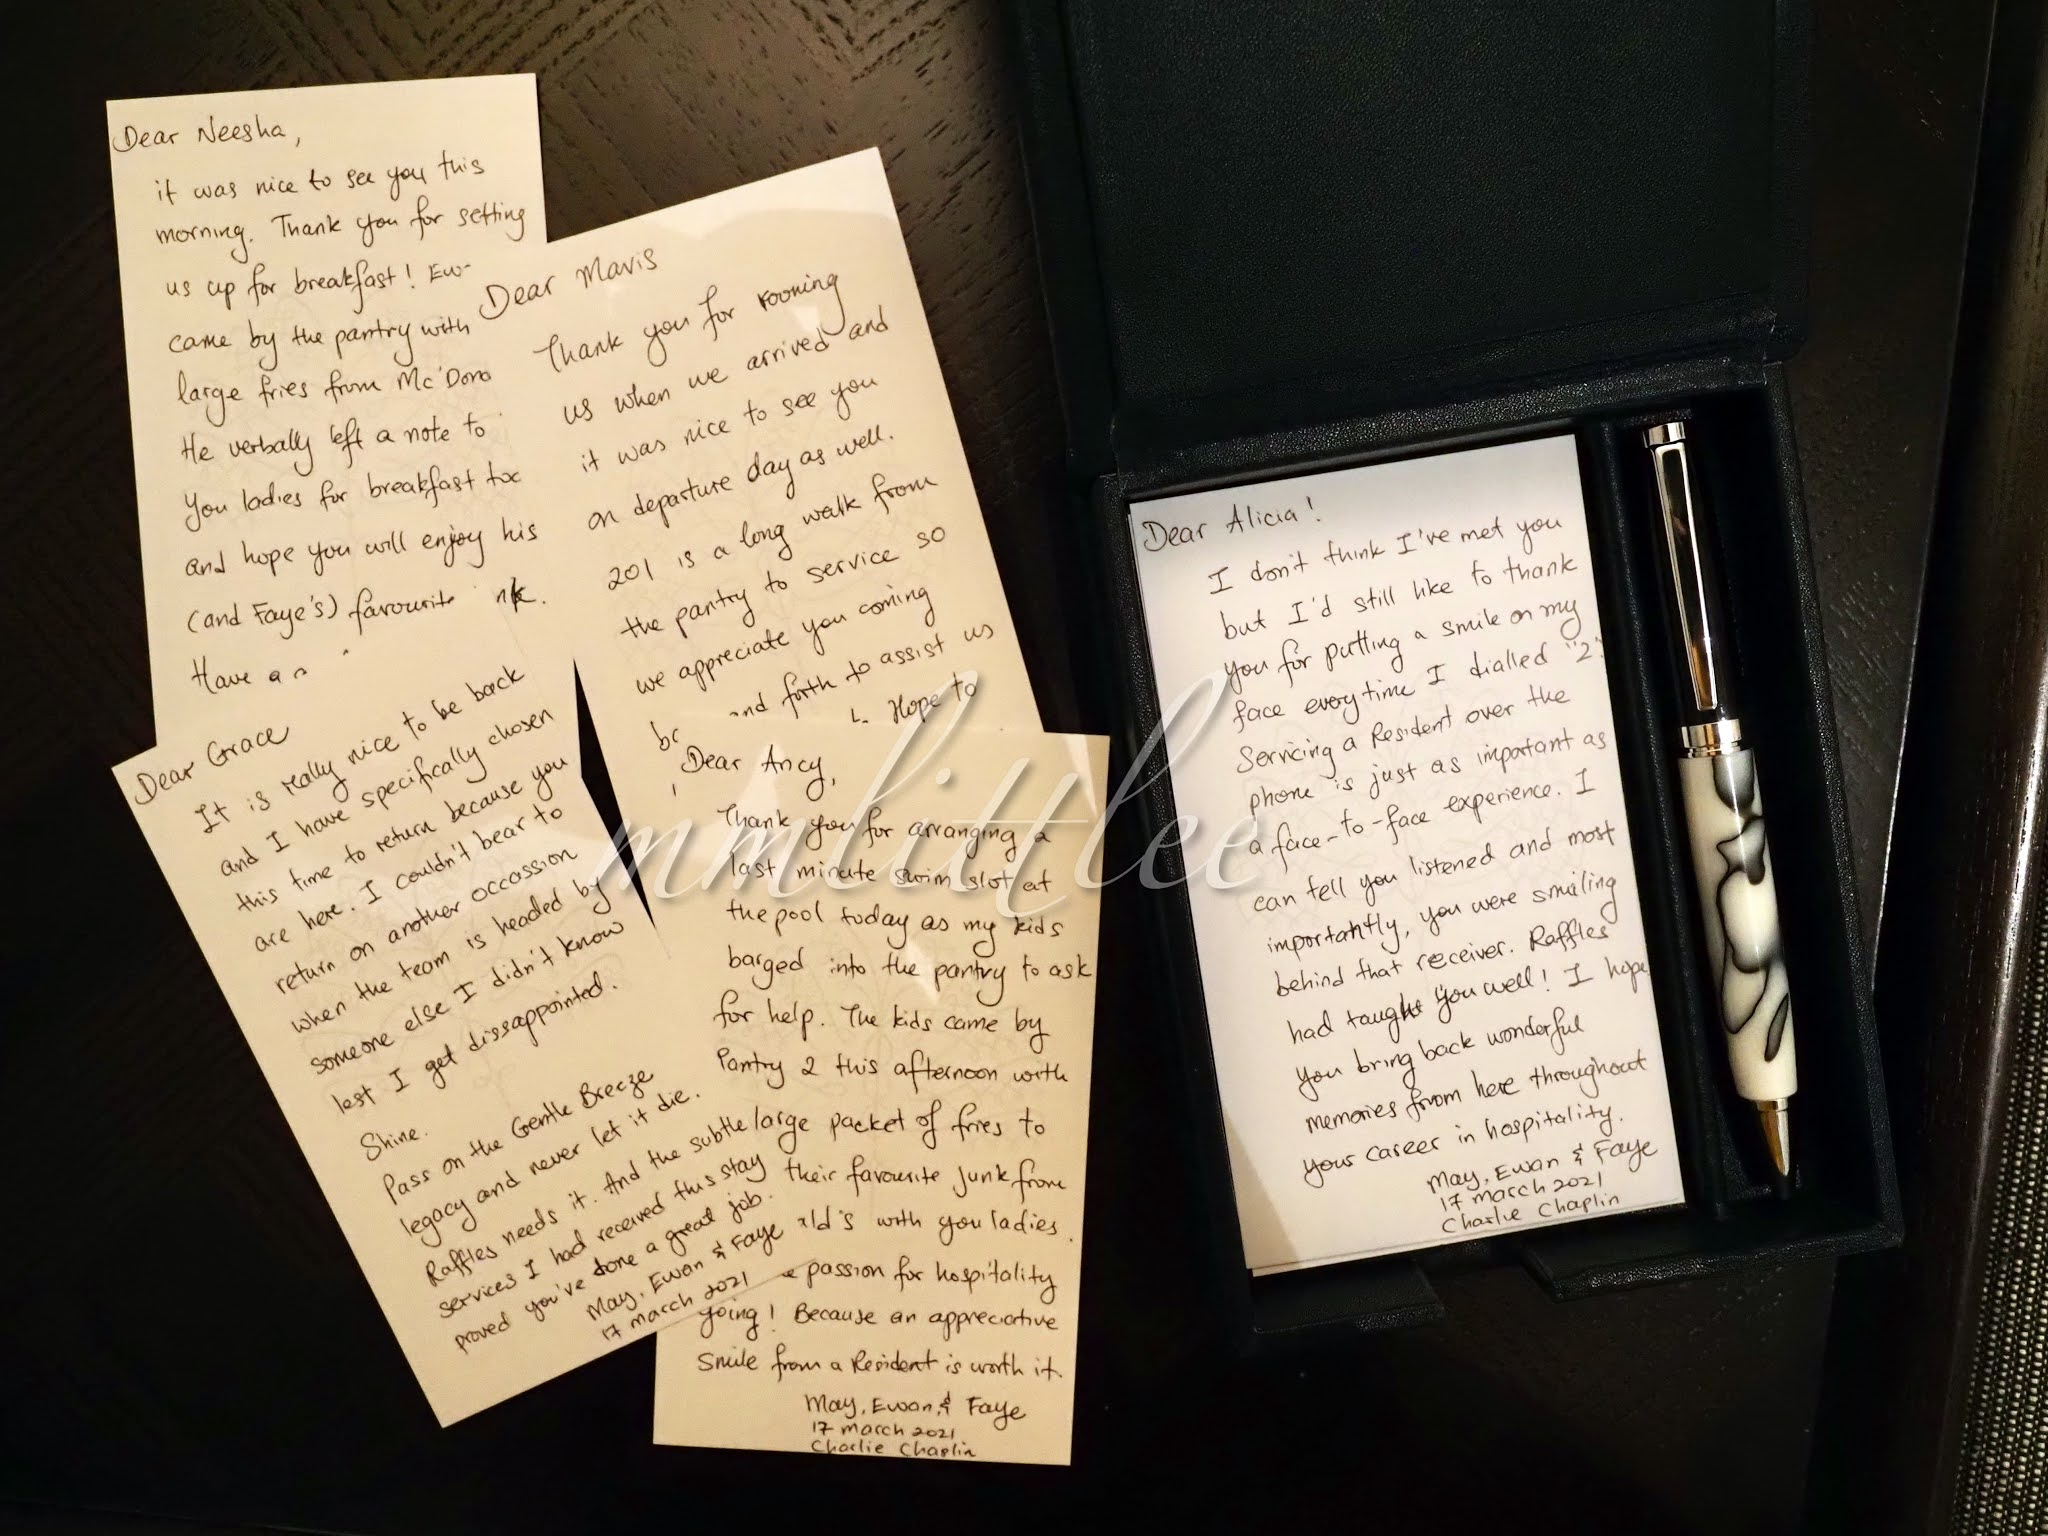 Dear Neesha,
it was nice to see you this
morning. Thank you for setting
us up for breakfast! Ew-
came by the pantry with
large fries from Mc'Dona
He verbally left a note to
you ladies for breakfast too
and hope you will enjoy his
(and Faye's) favourite
Have a
Dear Mavis
Thank you for rooming
us when we arrived and
it was nice to see you
on departure day as well.
201 is a long walk from
the pantry to service so
we appreciate you coming
and forth to assist us
Hope to
Dear Grace
It is really nice to be back
and I have specifically chosen
this time to return because you
are here. I couldn't bear to
return on another occassion
when the team is headed by
someone else I didn't know
lest I get dissappointed.
Shine.
Pass on the Gentle Breeze
legacy and never let it die.
Raffles needs it. And the subtle
services I had received this stay
proved you've done a great job.
May, Ewan & Faye
17 march 2021
Dear Ancy,
Thank you for arranging a
last minute swim slot at
the pool today as my kids
barged into the pantry to ask
for help. The kids came by
Pantry 2 this afternoon with
large packet of fries to
their favourite junk from
ald's with you ladies.
passion for hospitality
going! Because an appreciative
smile from a Resident is worth it.
May, Ewan & Faye
17 march 2021
Charlie Chaplin
Dear Alicia!
I don't think I've met you
but I'd still like to thank
you for putting a smile on my
face everytime I dialled "2".
Servicing a Resident over the
phone is just as important as
a face-to-face experience. I
can tell you listened and most
importantly, you were smiling
behind that receiver. Raffles
had taught you well! I hope
you bring back wonderful
memories from here throughout
your career in hospitality.
May, Ewan & Faye
17 march 2021
Charlie Chaplin
mmlittlee